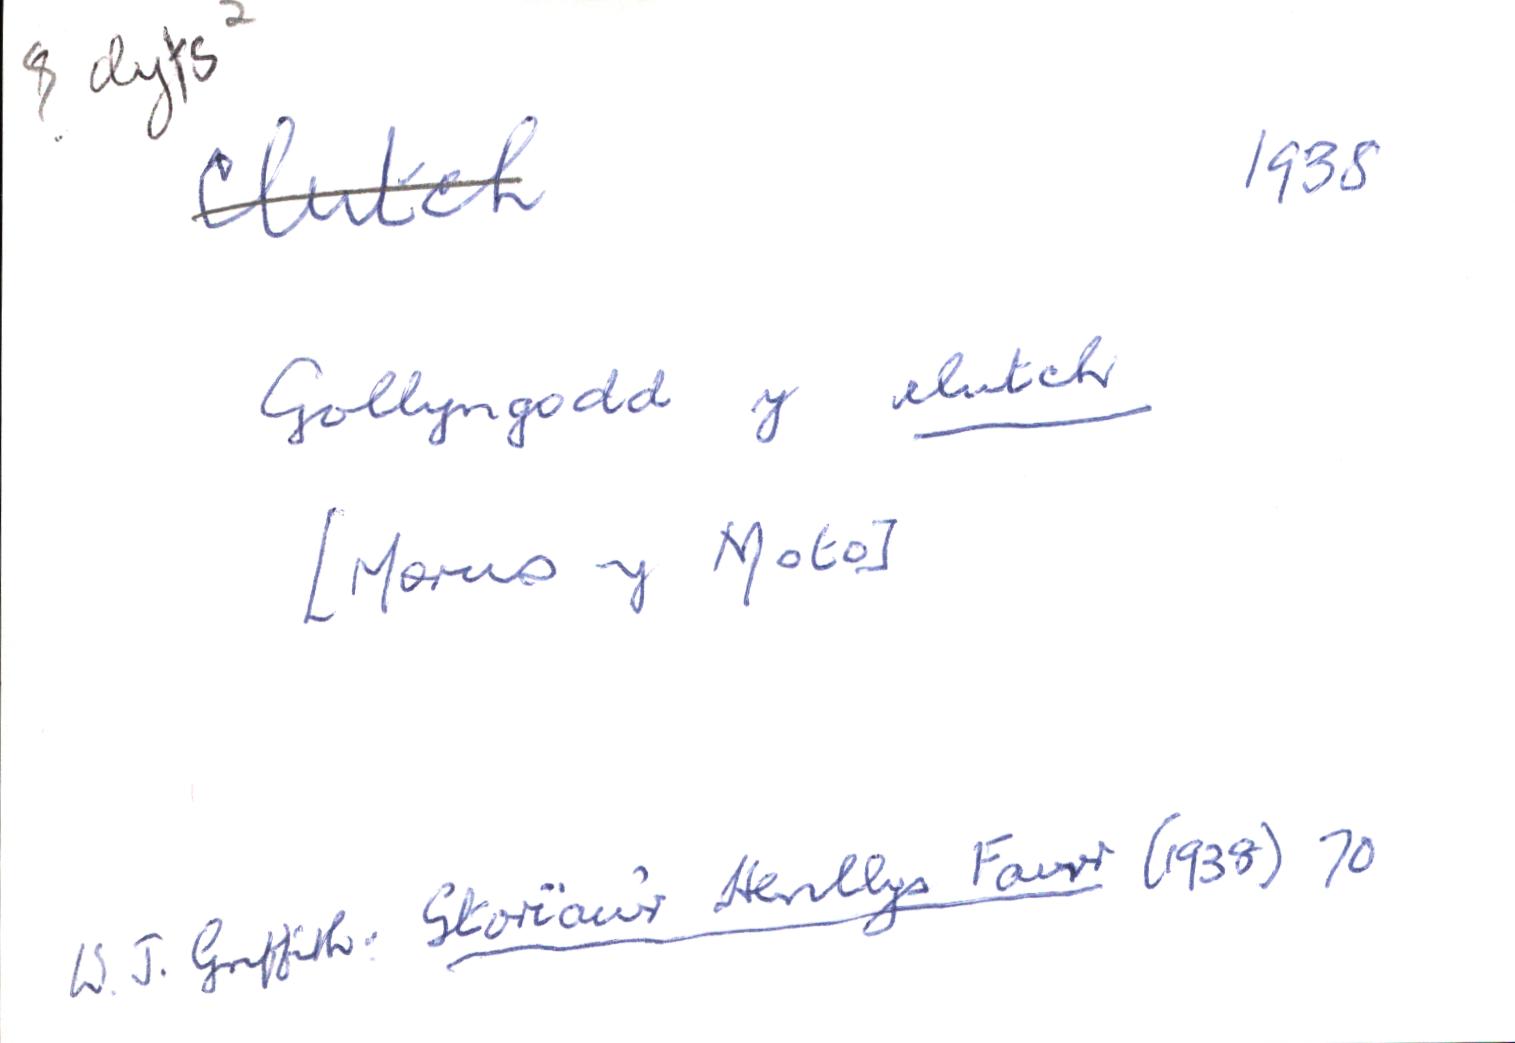 Clutch 1938
Gollyngodd y clutch
[Morus y Moto]
W. J. Griffith: Storïau'r Henllys Fawr (1938) 70